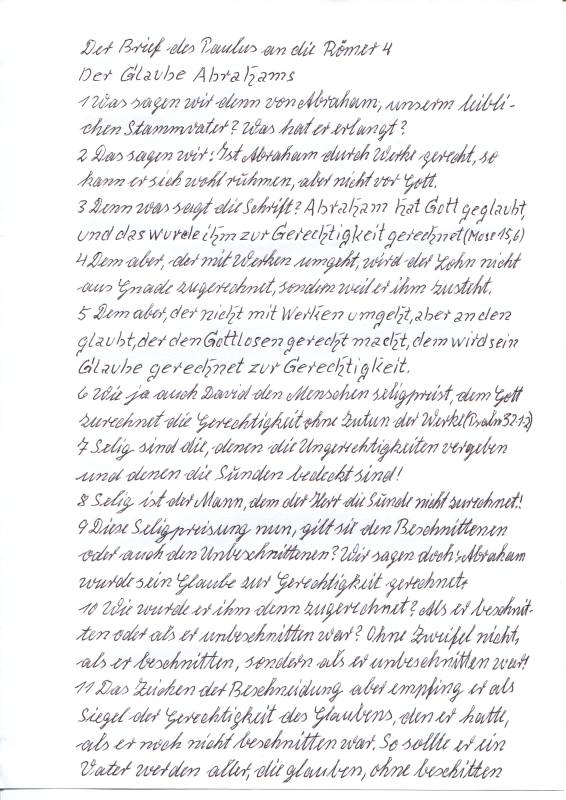 Der Brief des Paulus an die Römer 4
Der Glaube Abrahams
1 Was sagen wir denn von Abraham, unserm leibli-
chen Stammvater? Was hat er erlangt?
2 Das sagen wir: Ist Abraham durch Werke gerecht, so
kann er sich wohl rühmen, aber nicht vor Gott.
3 Denn was sagt die Schrift? Abraham hat Gott geglaubt,
und das wurde ihm zur Gerechtigkeit gerechnet (Mose 15,6)
4 Dem aber, der mit Werken umgeht, wird der Lohn nicht
aus Gnade zugerechnet, sondern weil er ihm zusteht.
5 Dem aber, der nicht mit Werken umgeht, aber an den
glaubt, der den Gottlosen gerecht macht, dem wird sein
Glaube gerechnet zur Gerechtigkeit.
6 Wie ja auch David den Menschen seligpreist, dem Gott
zurechnet die Gerechtigkeit ohne Zutun der Werke (Psalm 32 1.2)
7 Selig sind die, denen die Ungerechtigkeiten vergeben
und denen die Sünden bedeckt sind!
8 Selig ist der Mann, dem der Herr die Sünde nicht zurechnet!
9 Diese Seligpreisung nun, gilt sie den Beschnittenen
oder auch den Unbeschnittenen? Wir sagen doch: Abraham
wurde sein Glaube zur Gerechtigkeit gerechnet.
10 Wie wurde er ihm denn zugerechnet? Als er beschnit-
ten oder als er unbeschnitten war? Ohne Zweifel nicht,
als er beschnitten, sondern als er unbeschnitten war!
11 Das Zeichen der Beschneidung aber empfing er als
Siegel der Gerechtigkeit des Glaubens, den er hatte,
als er noch nicht beschnitten war. So sollte er ein
Vater werden aller, die glauben, ohne beschitten